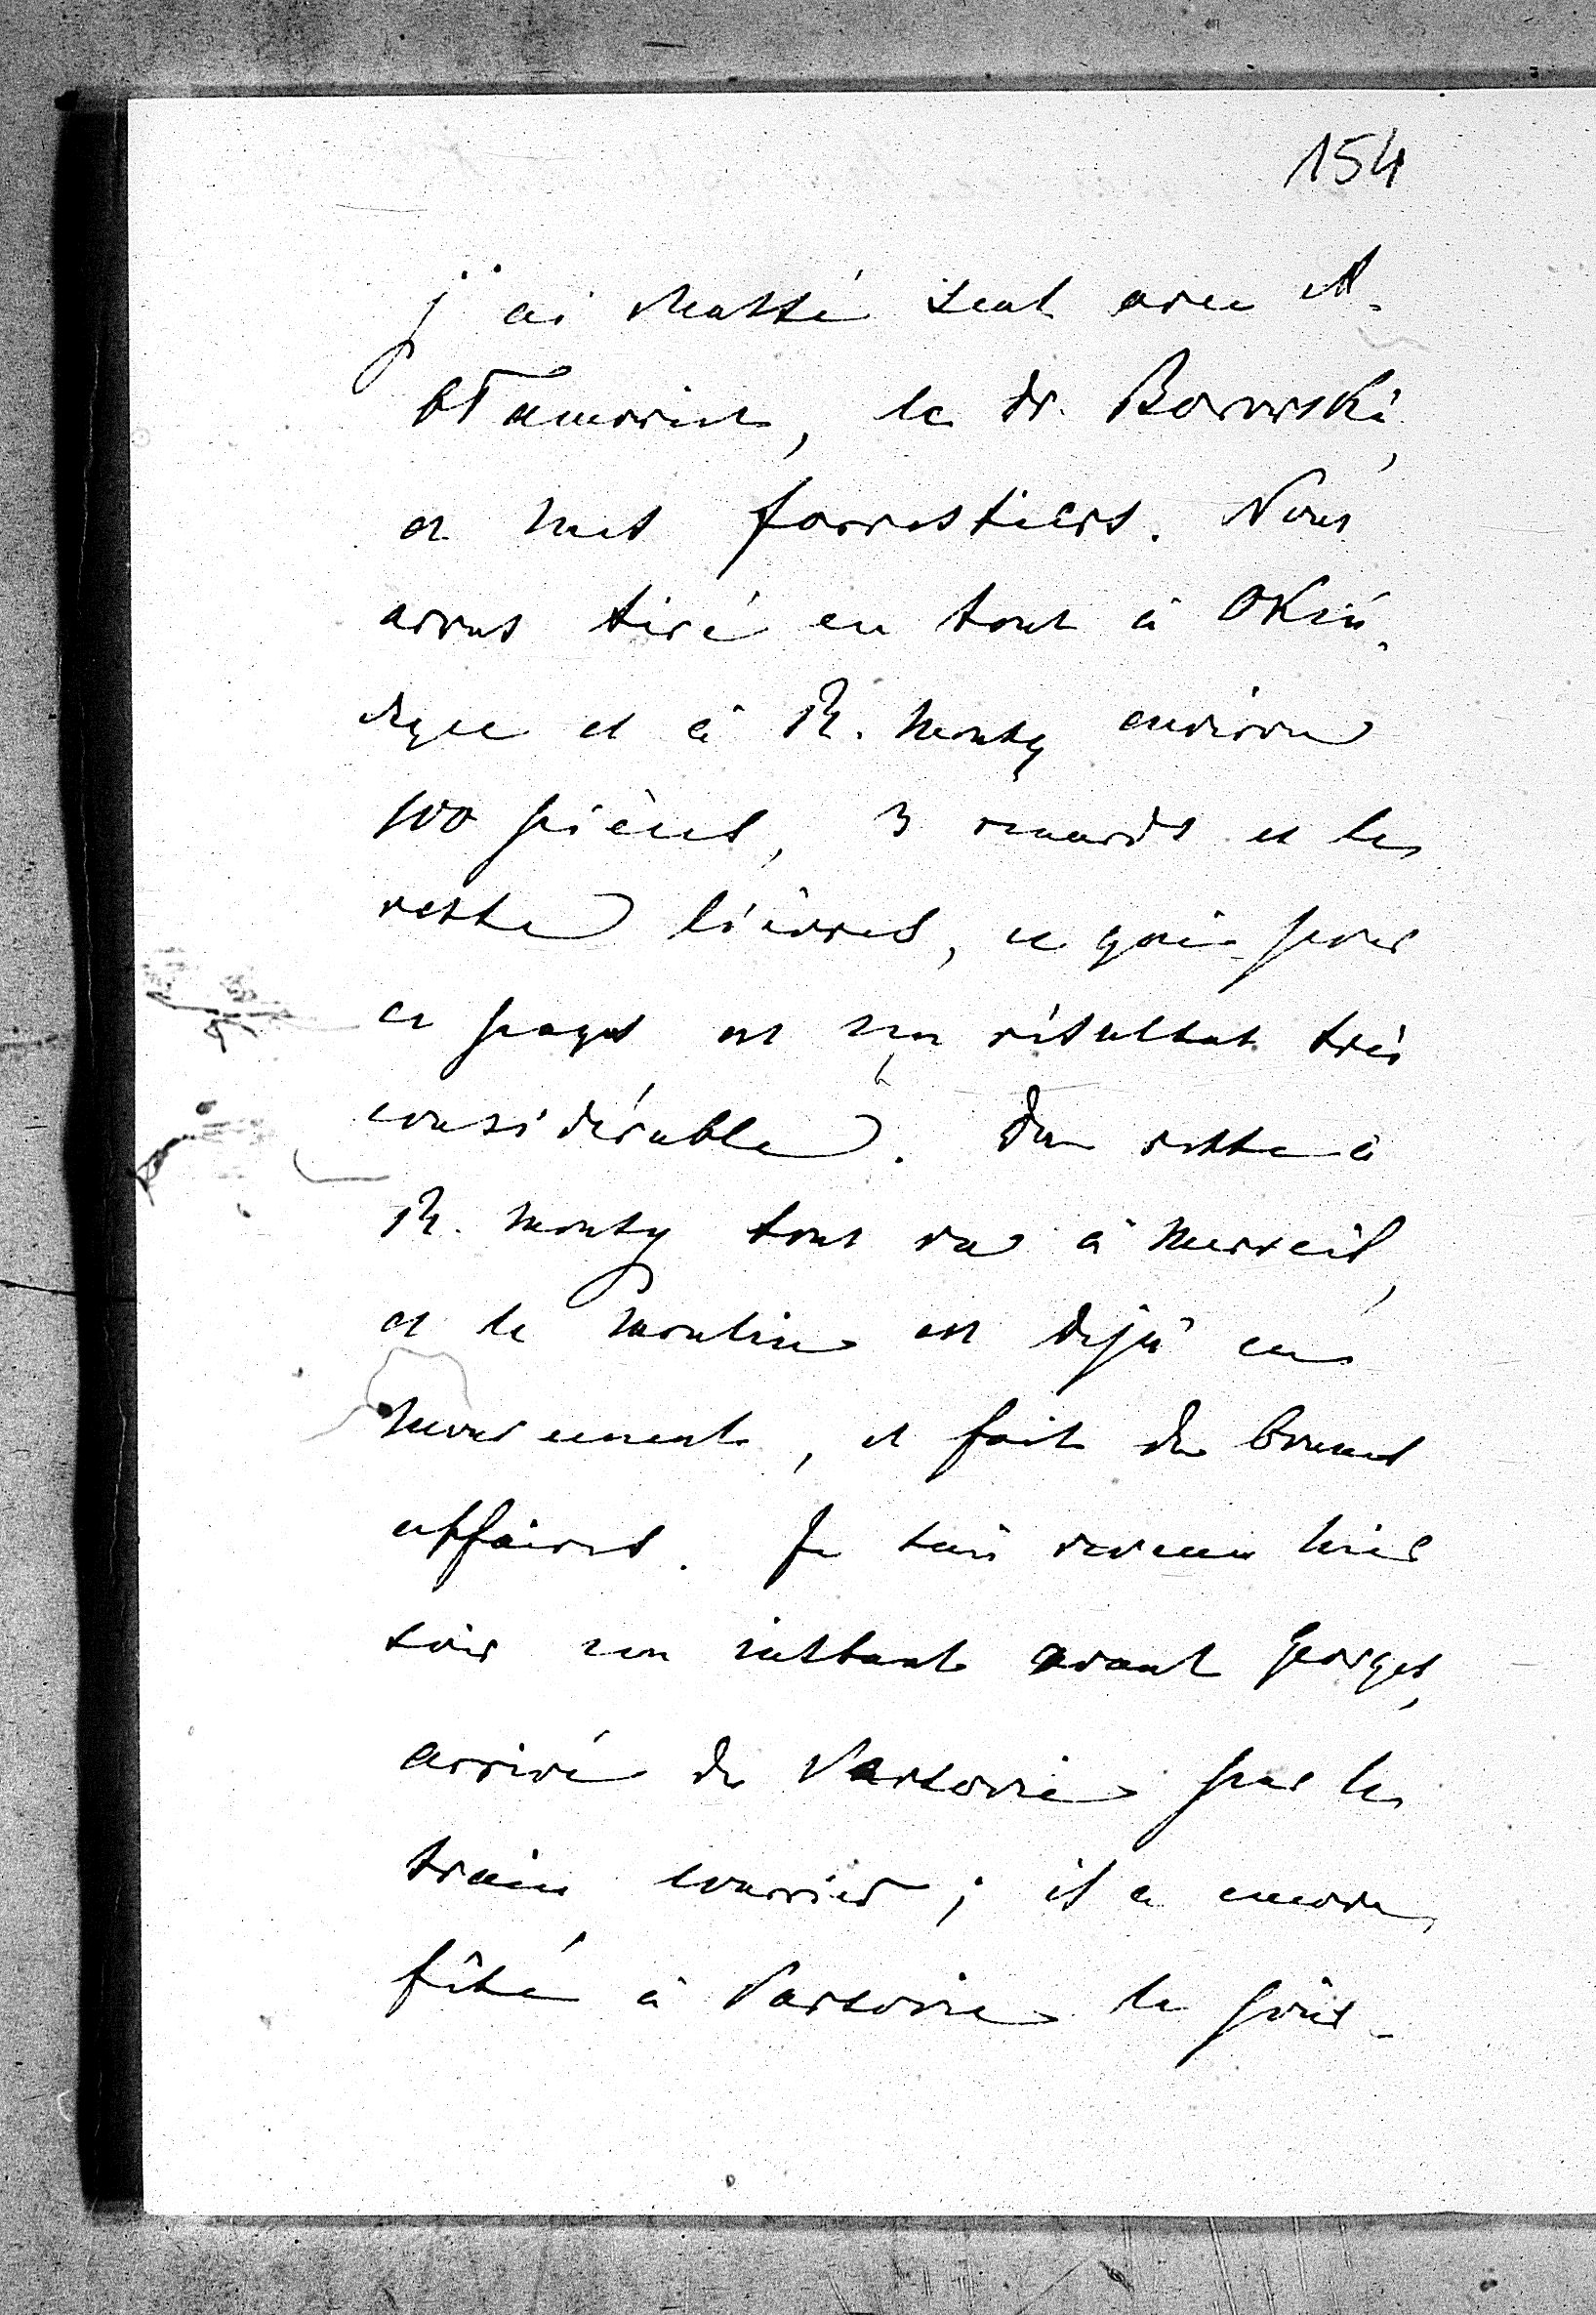 154
j'ai chassé seul avec M.
le Dr. Borowski,
et mes forrestiers. Nous
avons tiré en tout à Okiń-
czyce et à Ph. Mosty environ
100 pièces, 3 renards et le
reste lièvres, ce qui pour
ce pays est un résultat très
considérable. Du reste à
Ph. Mosty tout va à merveil,
et le moulin est déjà en
mouvement, et fait de bonnes
affaires. Je suis revenu hier
soir un instant avant Georges,
arrivé de Varsovie par le
train courrier; il a encore
fêté à Varsovie le jour-